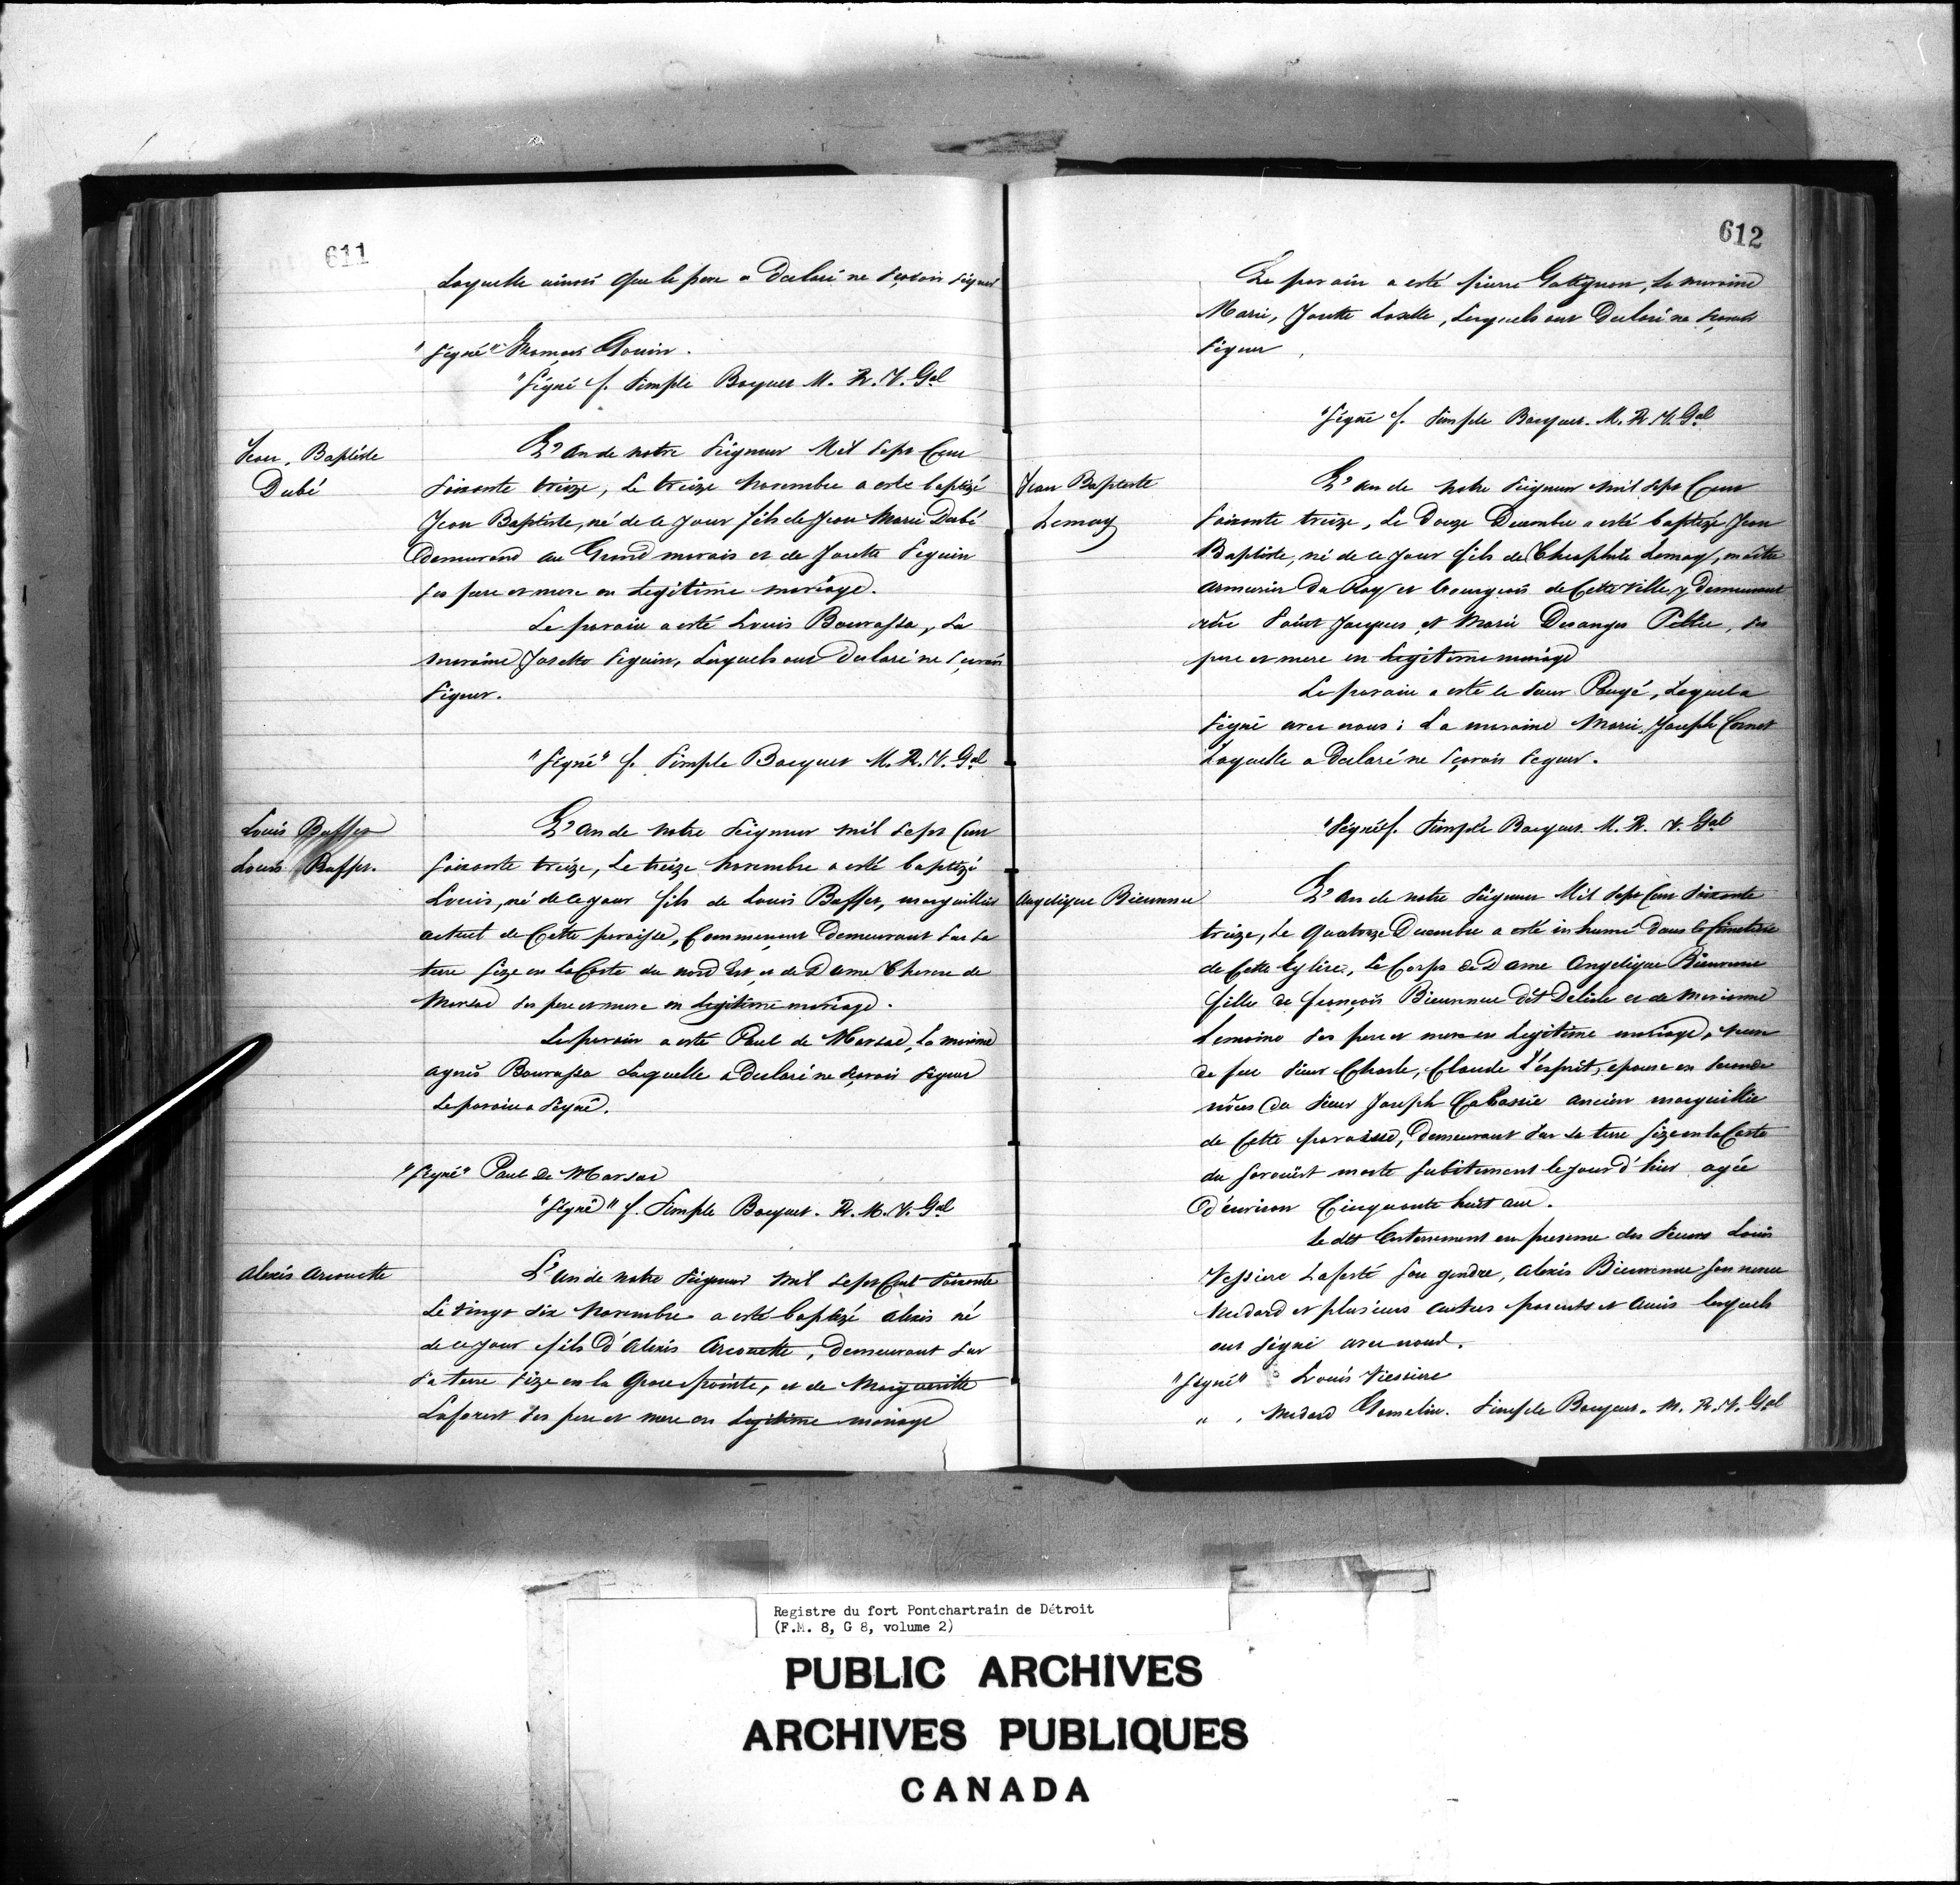 611
Laquelle ainsi que le pere a Declaré ne Sçavoir Signer
"Signé" Thomas Gouin.
"Signé f. Simple Bocquet M. R. V. Gal
Jean. Baptiste
Dubé
L'an de notre Seigneur Mil Sept Cent
Soixante treize, Le treize Novembre a esté baptizé
Jean Baptiste, né de ce jour fils de Jean Marie Dubé
demeurand au Grand marais et de Josette Seguin
Ses pere et mere en Legitime mariage.
Le parain a esté Louis Bourassa, La
maraine Josette Seguin, Lesquels ont Declaré ne Sçavoir
Signer.
"Signé" f. Simple Bocquet M. R. V. Gal
Louis Buffet
Louis Buffet.
L'an de notre Seigneur mil Sept Cent
Soixante treize, Le treize Novembre a esté baptizé
Louis, né de ce jour fils de Louis Buffet, marguillier
actuel de Cette paroisse, Commençant Demeurant Sur Sa
terre Size en La Coste du nord Est et de Dame Therese de
Marsac Ses pere et mere en Legitime mariage.
Le parain a esté Paul de Marsac, La maraine
agnès Bourassa Laquelle a Declaré ne Sçavoir Signer
Le parain a Signé.
"Signé" Paul de Marsac
"Signé" f. Simple Bocquet. R. M. V. Gal
Alexis Arcouette
L'an de notre Seigneur Mil Sept Cent Soixante
Le vingt Six Novembre a esté baptizé Alexis né
de ce jour fils D'Alexis Arcouette, Demeurant Sur
Sa terre Size en la Grosse pointe, et de Margueritte
Laforest Ses pere et mere en Legitime mariage
612
Le parain a esté pierre Gatignon, La maraine
Marie, Josette Loselle, Lesquels ont Declaré ne Scavoir
Signer
"Signé f. Simple Bocquet. M. R. V. Gal
Jean Baptiste
Lemay
L'an de notre Seigneur mil Sept Cent
Soixante treize, Le Douze Decembre a esté baptizé Jean
Baptiste, né de ce jour fils de Theophile Lemay, maître
armurier Du Roy et bourgeois de Cette Ville y Demeurant
rüe Saint Jacques et Marie Desanges Peltier, Ses
pere et mere en Legitime mariage
Le parain a esté le Sieur Paugé, Lequel a
Signé avec nous; La maraine Marie, Joseph Cornet
Laquelle a Declaré ne Sçavoir Signer.
"Signé f. Simple Bocquet. M. R. V. Gal
Angelique Bienvenue
L'an de notre Seigneur Mil Sept Cent Soixante
treize, Le quatorze Decembre a esté inhumé dans le Cimetiere
de Cette Eglise, Le Corps de Dame Angelique Bienvenue
fille de françois Bienvenue dit Delisle et de Marianne
Lemoine Ses pere et mere en Legitime mariage, veuve
de feu Sieur Charle, Claude l'esprit, epouse en Seconde
nôces du Sieur Joseph Cabassie ancien marguillie
de Cette paroisse, Demeurant Sur Sa terre Size en la Coste
du Sorouest morte Subitement le jour d'hier agée
d'environ Cinquante huit ans.
Le dit Enterrement en presence des Sieurs Louis
Vessiere Laferté Son gendre, Alexis Bienvenue Son neveu
Medard et plusieurs autres parents et amis lesquels
ont Signé avec nous.
"Signé" Louis Viessiere
" . Medard Gamelin. Simple Bocquet. M. R. V. Gal
Registre du fort Pontchartrain de Détroit
(F.M. 8, G 8, volume 2)
PUBLIC ARCHIVES
ARCHIVES PUBLIQUES
CANADA